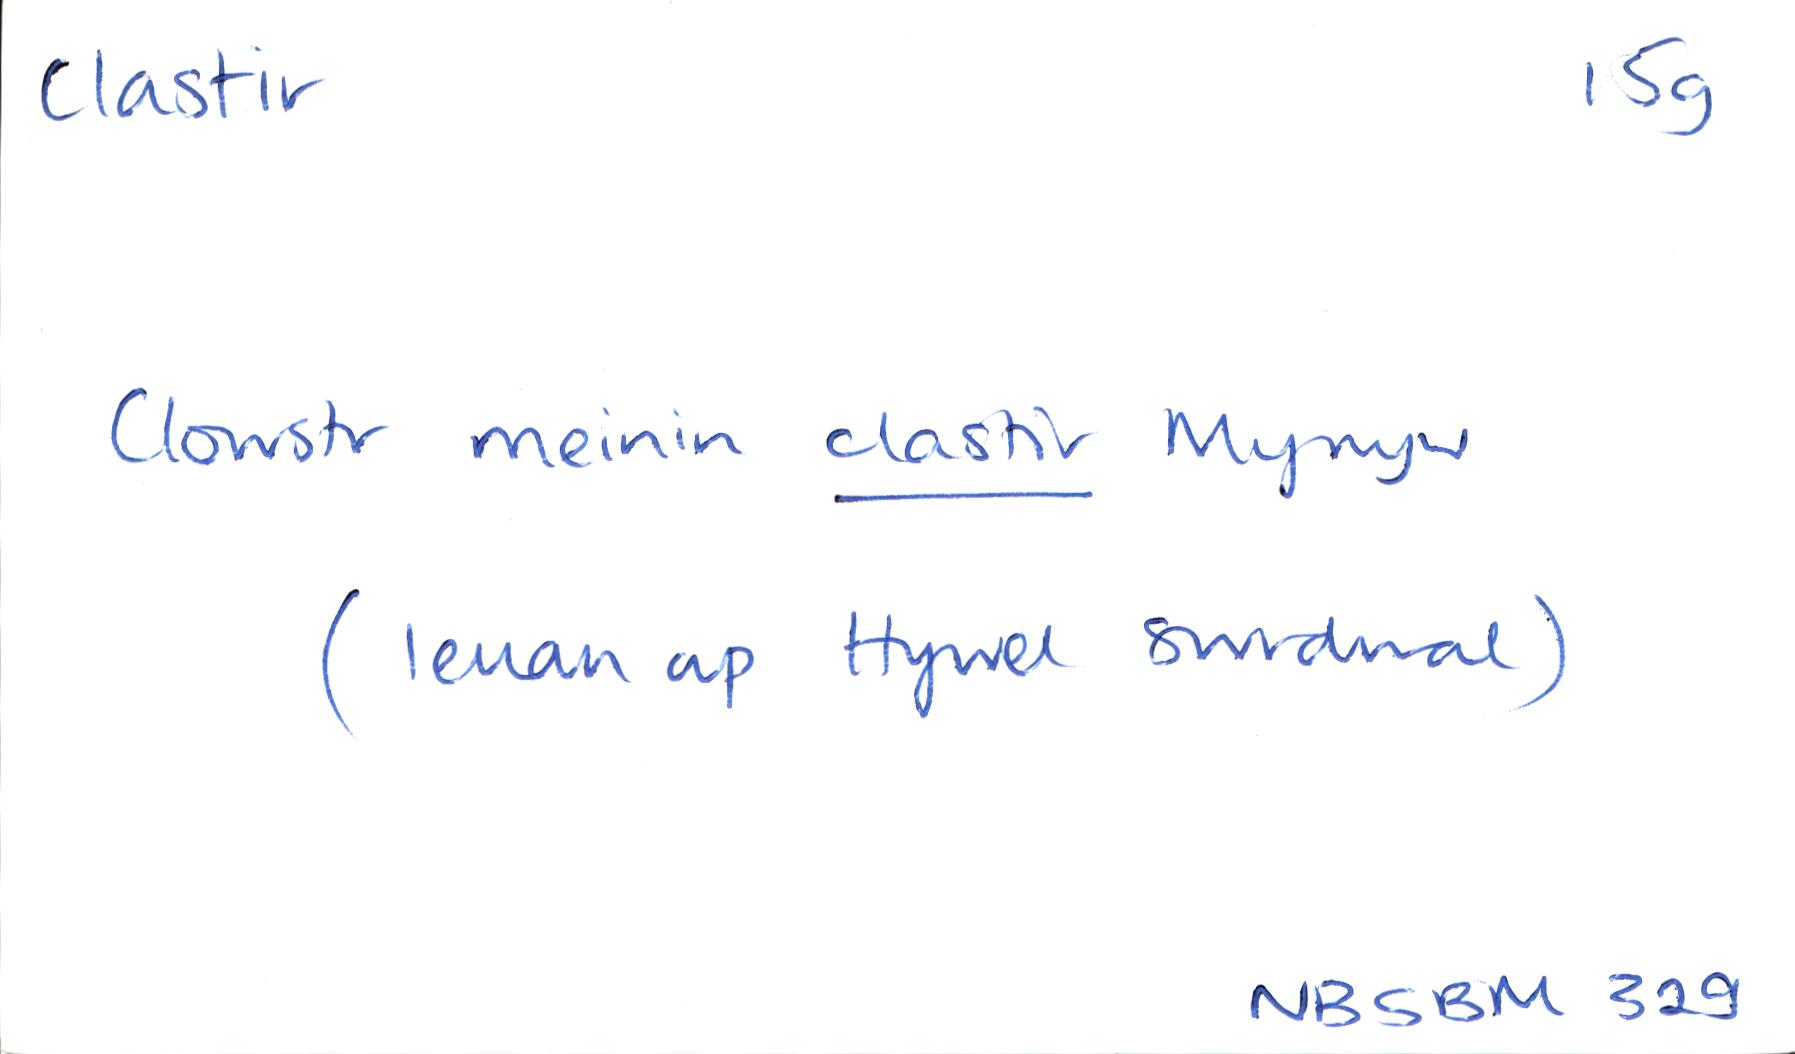 Clastir 15g
Clowstr meinin clastir Mynyw
(Ieuan ap Hywel Swrdwal)
NBSBM 329